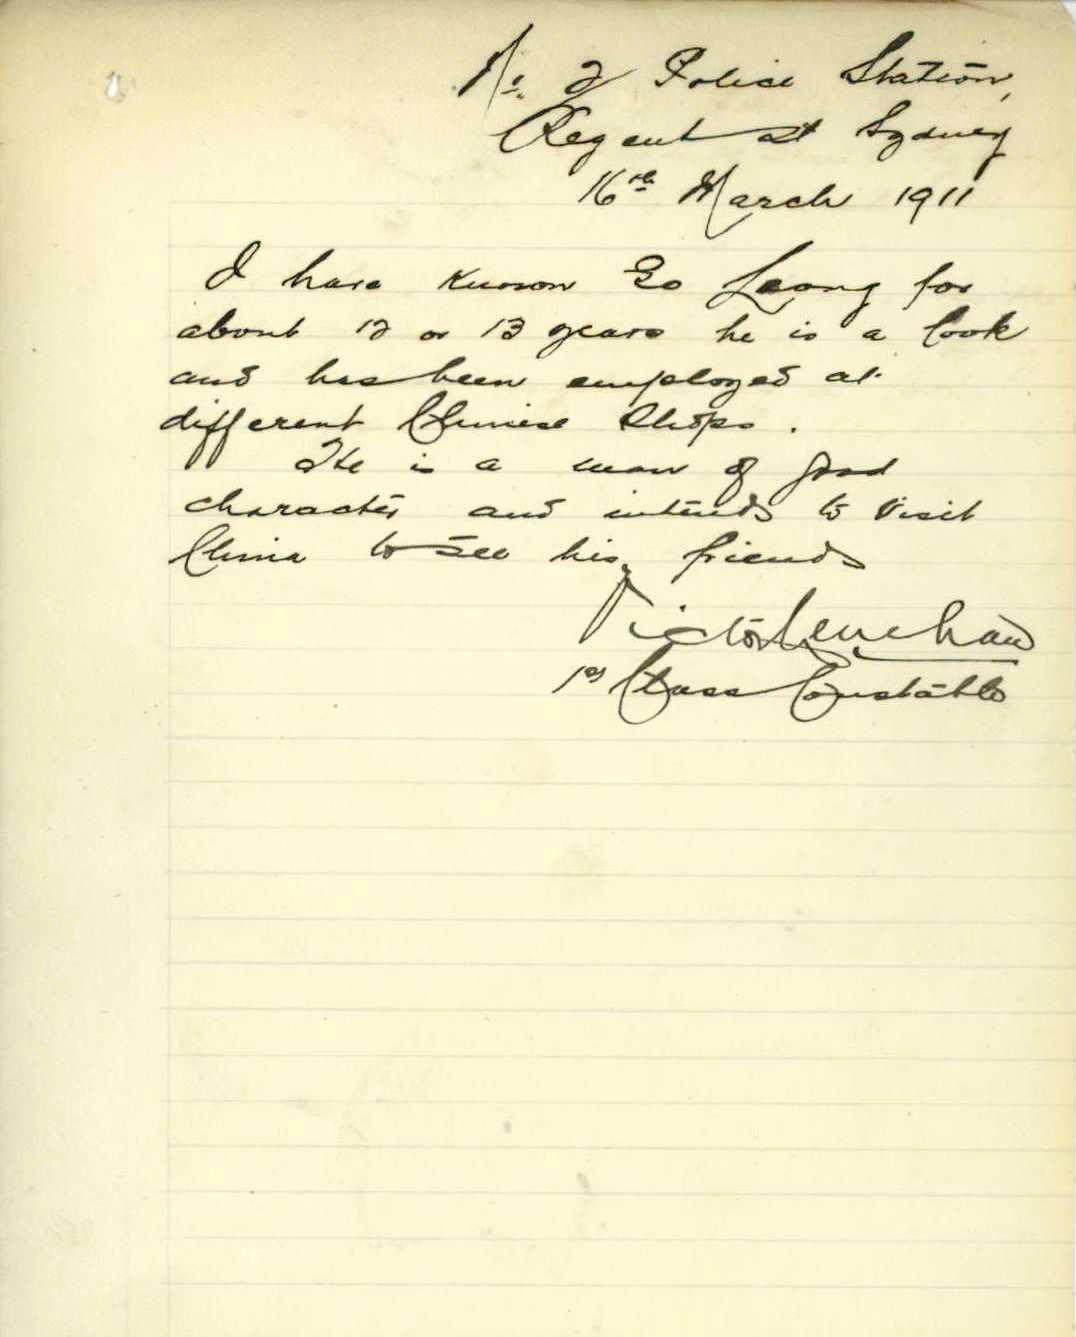 No. 2 Police Station,
Regent St Sydney
16th March 1911
I have known Go Leong for
about 12 or 13 years he is a Cook
and has been employed at
different Chinese Shops.
He is a man of good
character and intends to visit
China to see his friends
Victor Lenehan
1st Class Constable